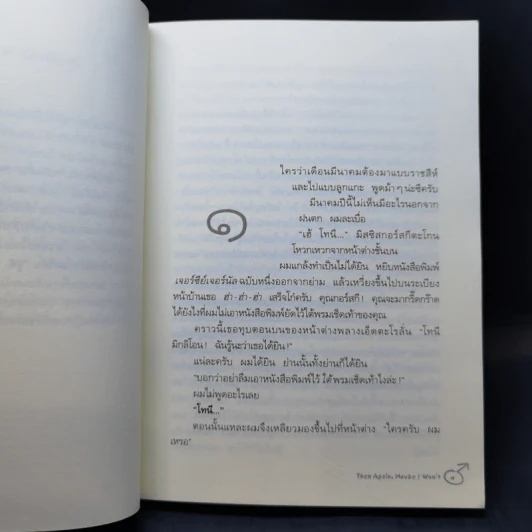 ๑
ใครว่าเดือนมีนาคมต้องมาแบบราชสีห์
และไปแบบลูกแกะ พูดม้าๆ น่ะซีครับ
มีนาคมปีนี้ไม่เห็นมีอะไรนอกจาก
ฝนตก ผมละเบื่อ
“เฮ้ โทนี...” มิสซิสกอร์สกีตะโกน
โหวกเหวกจากหน้าต่างชั้นบน
ผมแกล้งทำเป็นไม่ได้ยิน หยิบหนังสือพิมพ์
เจอร์ซีย์เจอร์นัล ฉบับหนึ่งออกจากย่าม แล้วเหวี่ยงขึ้นไปบนระเบียง
หน้าบ้านเธอ ฮ่า-ฮ่า-ฮ่า เสร็จโก๋ครับ คุณกอร์สกี! คุณจะมากรี๊ดกร๊าด
ได้ยังไงที่ผมไม่เอาหนังสือพิมพ์ยัดไว้ใต้พรมเช็ดเท้าของคุณ
คราวนี้เธอทุบตอนบนของหน้าต่างพลางเอ็ดตะโรลั่น “โทนี
มิกลิโอน! ฉันรู้นะว่าเธอได้ยิน!”
แน่ละครับ ผมได้ยิน ย่านนั้นทั้งย่านก็ได้ยิน
“บอกว่าอย่าลืมเอาหนังสือพิมพ์ไว้ ใต้พรมเช็ดเท้าไงล่ะ!”
ผมไม่พูดอะไรเลย
“โทนี...”
ตอนนั้นแหละผมจึงเหลียวมองขึ้นไปที่หน้าต่าง “ใครครับ ผม
เหรอ”
Then Again, Maybe I Won't